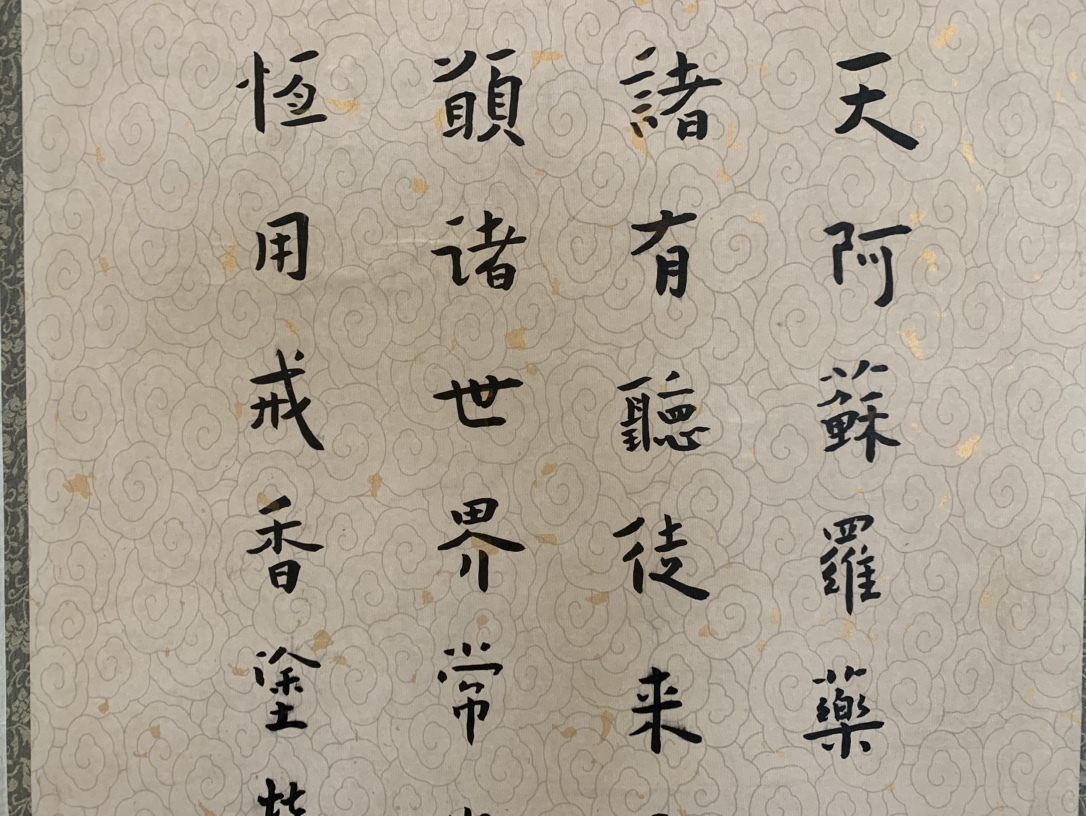 天阿蘇羅藥
諸有聽徒来
願諸世界常
恆用戒香塗